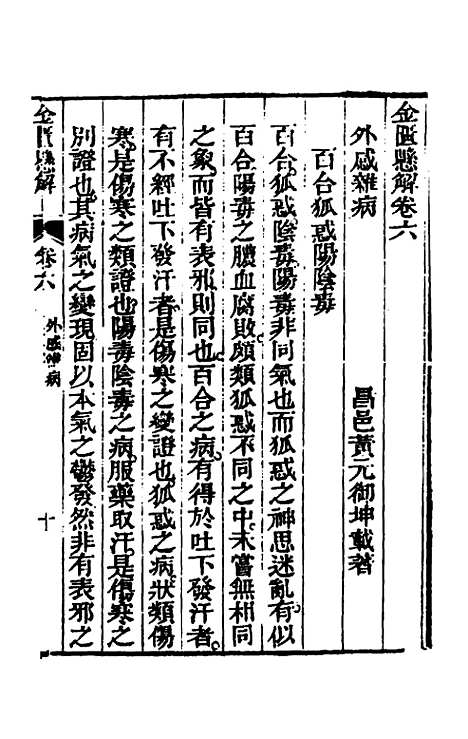 金匱懸解卷六
昌邑黃元御坤載著
外感雜病
百合狐惑陽陰毒
百合。狐惑陰毒。陽毒非同氣也。而狐惑之神思迷亂。有似
百合陽毒之膿血腐敗。頗類狐惑。不同之中。未嘗無相同
之象。而皆有表邪。則同也。百合之病。有得於吐下發汗者。
有不經吐下發汗者。是傷寒之變證也。狐惑之病。狀類傷
寒。是傷寒之類證也。陽毒陰毒之病。服藥取汗。是傷寒之
別證也。其病氣之變現。固以本氣之鬱發。然非有表邪之
金匱懸解
卷六
外感雜病
十